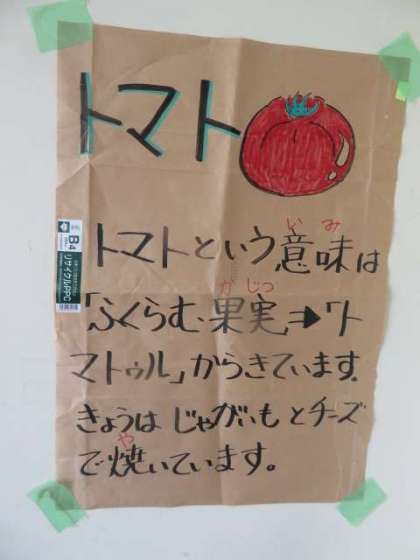 トマト
トマトという意味は
いみ
「ふくらむ果実」⇒「ト
かじつ
マトゥル」からきています。
きょうはじゃがいもとチーズ
で焼いています。
や
B4
リサイクルPPC